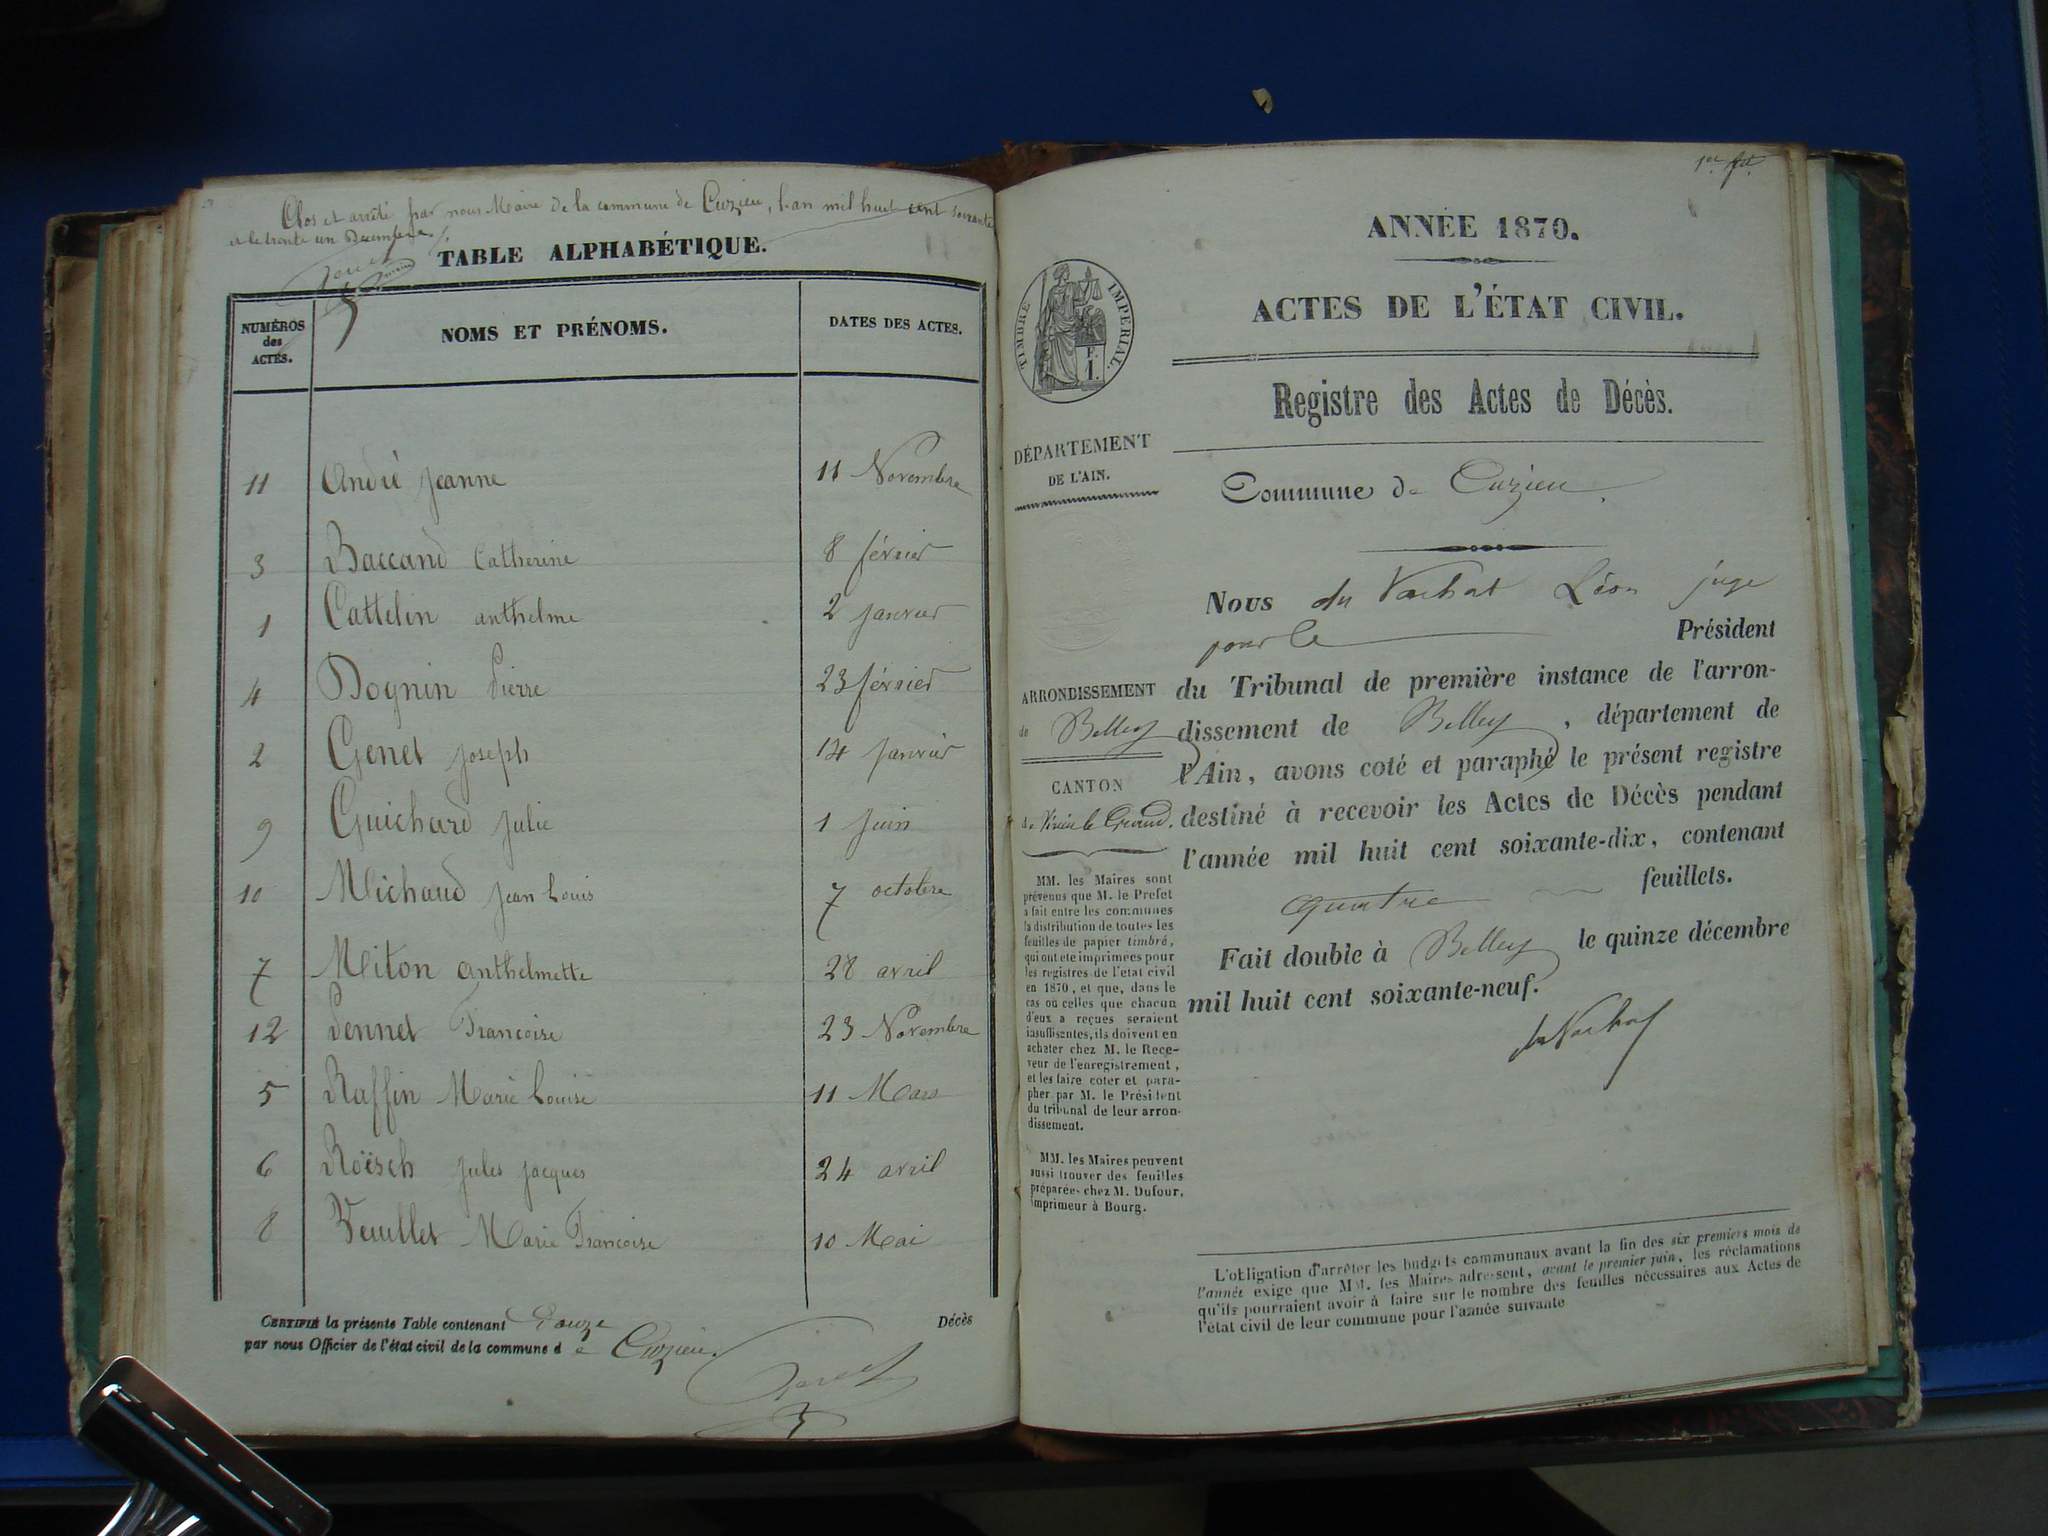 Clos et arrêté par nous Maire de la commune de Cuzieu, l'an mil huit cent soixante
et le trente un Décembre.
TABLE ALPHABÉTIQUE.
NUMÉROS des ACTES.
NOMS ET PRÉNOMS.
DATES DES ACTES.
11 André Jeanne 11 Novembre
3 Baccand Catherine 8 février
1 Cattelin anthelme 2 Janvier
4 Dognin Pierre 23 février
2 Genet Joseph 14 Janvier
9 Guichard Julie 1 Juin
10 Michaud Jean Louis 7 octobre
7 Miton anthelmette 28 avril
12 Pennet Francoise 23 Novembre
5 Raffin Marie Louise 11 Mars
6 Roësch Jules Jacques 24 avril
8 Veuillet Marie Francoise 10 Mai
CERTIFIÉ la présente Table contenant Douze Décès
par nous Officier de l'état civil de la commune d e Cuzieu.
1er ft
ANNÉE 1870.
ACTES DE L'ÉTAT CIVIL.
TIMBRE IMPÉRIAL.
Registre des Actes de Décès.
DÉPARTEMENT
DE L'AIN.
Commune de Cuzieu.
ARRONDISSEMENT
de Belley
CANTON
de Virieu le Grand.
MM. les Maires sont
prévenus que M. le Prefet
a fait entre les communes
la distribution de toutes les
feuilles de papier timbré,
qui ont été imprimées pour
les registres de l'état civil
en 1870, et que, dans le
cas où celles que chacun
d'eux a reçues seraient
insuffisantes, ils doivent en
acheter chez M. le Rece-
veur de l'enregistrement,
et les faire coter et para-
pher par M. le Président
du tribunal de leur arron-
dissement.
MM. les Maires peuvent
aussi trouver des feuilles
préparées chez M. Dufour,
imprimeur à Bourg.
Nous du Vachat Léon juge
pour le Président
du Tribunal de première instance de l'arron-
dissement de Belley, département de
l'Ain, avons coté et paraphé le présent registre
destiné à recevoir les Actes de Décès pendant
l'année mil huit cent soixante-dix, contenant
quatre feuillets.
Fait double à Belley le quinze décembre
mil huit cent soixante-neuf.
du Vachat
L'obligation d'arrêter les budgets communaux avant la fin des six premiers mois de
l'année exige que MM. les Maires adressent, avant le premier juin, les réclamations
qu'ils pourraient avoir à faire sur le nombre des feuilles nécessaires aux Actes de
l'état civil de leur commune pour l'année suivante